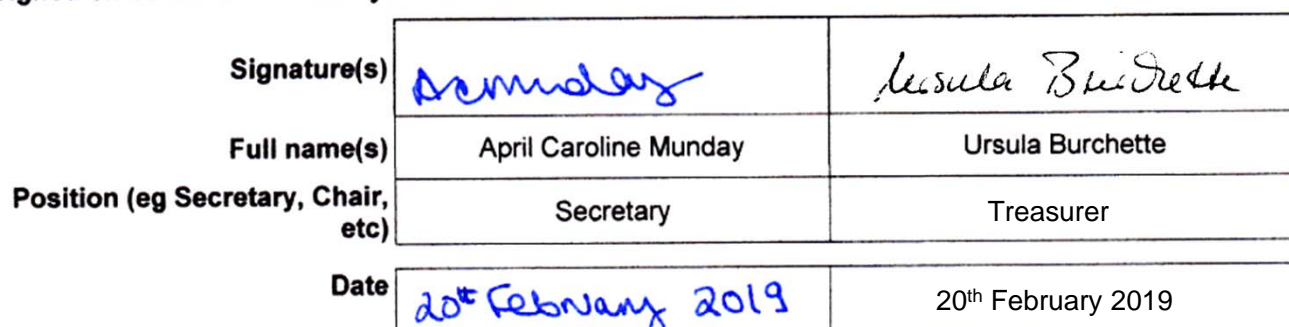 Signature(s) Acmunday Ursula Burchette
Full name(s) April Caroline Munday Ursula Burchette
Position (eg Secretary, Chair, etc) Secretary Treasurer
Date 20th February 2019 20th February 2019